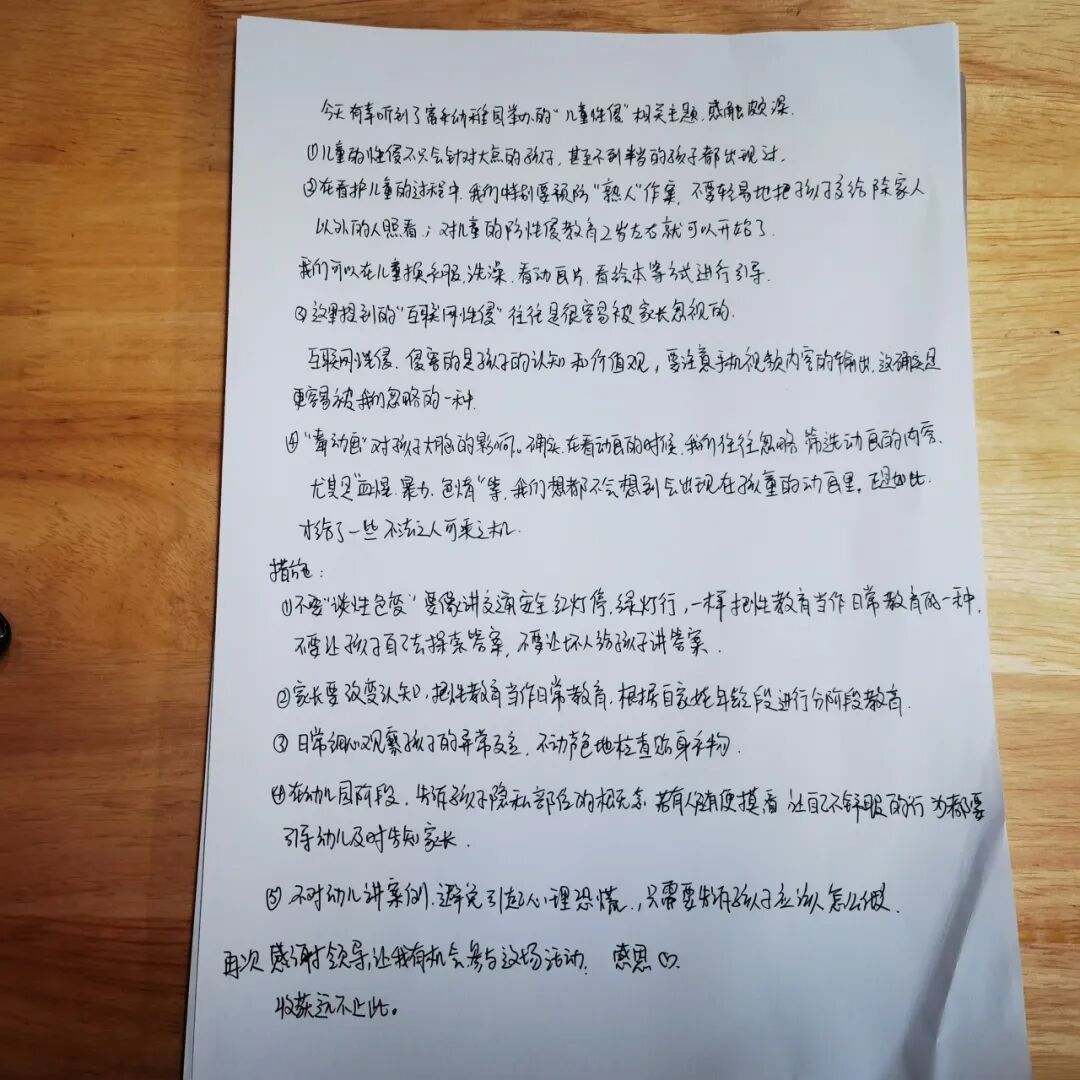 今天有幸听到了富禾幼稚园举办的“儿童性侵”相关主题,感触颇深.
①儿童的性侵不只会针对大点的孩子,甚至不到半岁的孩子都出现过.
②在看护儿童的过程中,我们特别要预防“熟人”作案,不要轻易地把孩子交给除家人
以外的人照看;对儿童的防性侵教育2岁左右就可以开始了.
我们可以在儿童换衣服.洗澡.看动画片.看绘本等方式进行引导.
③这里提到的“互联网性侵”往往是很容易被家长忽视的.
互联网性侵.侵害的是孩子的认知和价值观,要注意手机视频内容的输出.这确实是
更容易被我们忽略的一种.
④“毒动画”对孩子大脑的影响。确实在看动画的时候.我们往往忽略筛选动画的内容.
尤其是“血腥.暴力.色情”等,我们想都不会想到会出现在孩童的动画里.正是如此.
才给了一些不法之人可乘之机.
措施:
①不要“谈性色变”要像讲交通安全红灯停.绿灯行,一样把性教育当作日常教育的一种.
不要让孩子自己去探索答案,不要让坏人给孩子讲答案.
②家长要改变认知,把性教育当作日常教育.根据自家娃年龄段进行分阶段教育.
③日常细心观察孩子的异常反应.不动声色地检查贴身衣物.
④在幼儿园阶段.告诉孩子隐私部位的概念 若有人随便摸看 让自己不舒服的行为都要
引导幼儿及时告知家长.
⑤不对幼儿讲案例.避免引起心理恐慌.,只需要告诉孩子应该怎么做.
再次感谢领导,让我有机会参与这场活动. 感恩♡.
收获远不止此。